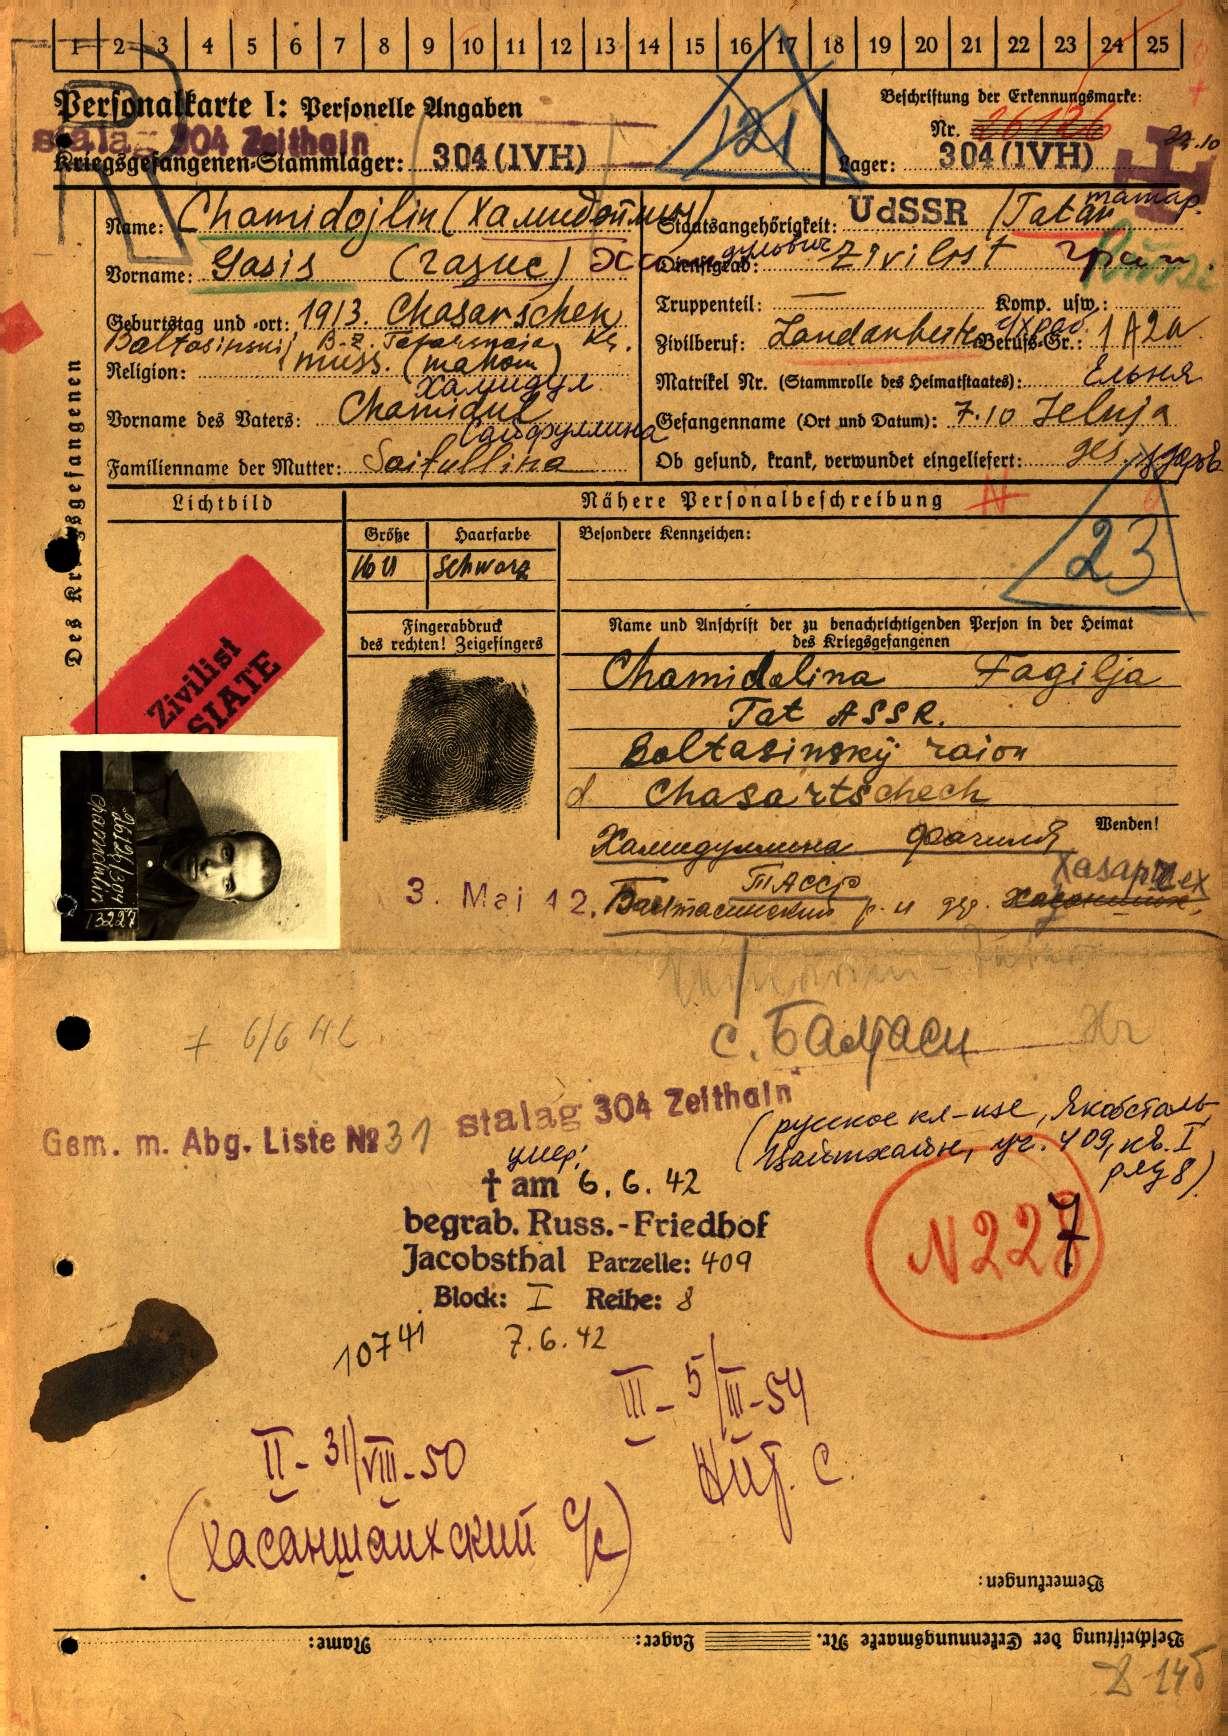 1 2 3 4 5 6 7 8 9 10 11 12 13 14 15 16 17 18 19 20 21 22 23 24 25
Personalkarte I: Personelle Angaben
121
Beschriftung der Erkennungsmarke:
Nr. 26126
Stalag 304 Zeithain
Kriegsgefangenen-Stammlager: 304 (IVH)
Lager: 304 (IVH)
24.10
Des Kriegsgefangenen
Name: Chamidojlin (Хамидойлин)
Vorname: Gasis (Газис)
Geburtstag und -ort: 1913. Chasarschek
Baltasinskij
Religion: mus. (махом)
Хамидул
Vorname des Vaters: Chamidul
Сайфуллина
Familienname der Mutter: Saifullina
Staatsangehörigkeit: UdSSR / Tatar татар.
Dienstgrad: Zivilist
Truppenteil: — Komp. usw.:
Zivilberuf: Landarbeiter Berufs-Gr.: 1A2a
Matrikel Nr. (Stammrolle des Heimatstaates): Ельня
Gefangennahme (Ort und Datum): 7.10 Jelnja
Ob gesund, krank, verwundet eingeliefert: ges. здоров
Lichtbild
Nähere Personalbeschreibung
Größe Haarfarbe Besondere Kennzeichen:
schwarz
23
Fingerabdruck
des rechten! Zeigefingers
Name und Anschrift der zu benachrichtigenden Person in der Heimat
des Kriegsgefangenen
Chamidolina Fagilja
Tat ASSR.
Baltasinský raion
d. Chasartschech
Wenden!
Хамидуллина Фагиля
ТАССР
Хазарчех
Балтасинский р-н дер.
Zivilist
26126/304
Chamidulin
13227
3. Mai 42.
с. Балтаси
+ 6/6 42.
Gem. m. Abg. Liste № 31
Stalag 304 Zeithain
(русское кл-ще, Якобсталь
Цайтхайн, уч. 409, кв. I
ряд 8).
умер:
† am 6.6.42
begrab. Russ.-Friedhof
Jacobsthal Parzelle: 409
Block: I Reihe: 8
7.6.42
N 227
10741
III - 5/III-54
II - 31/VIII-50
(Хасаншаихский с/с)
Bemerkungen:
Beschriftung der Erkennungsmarke Nr. Lager: Name: